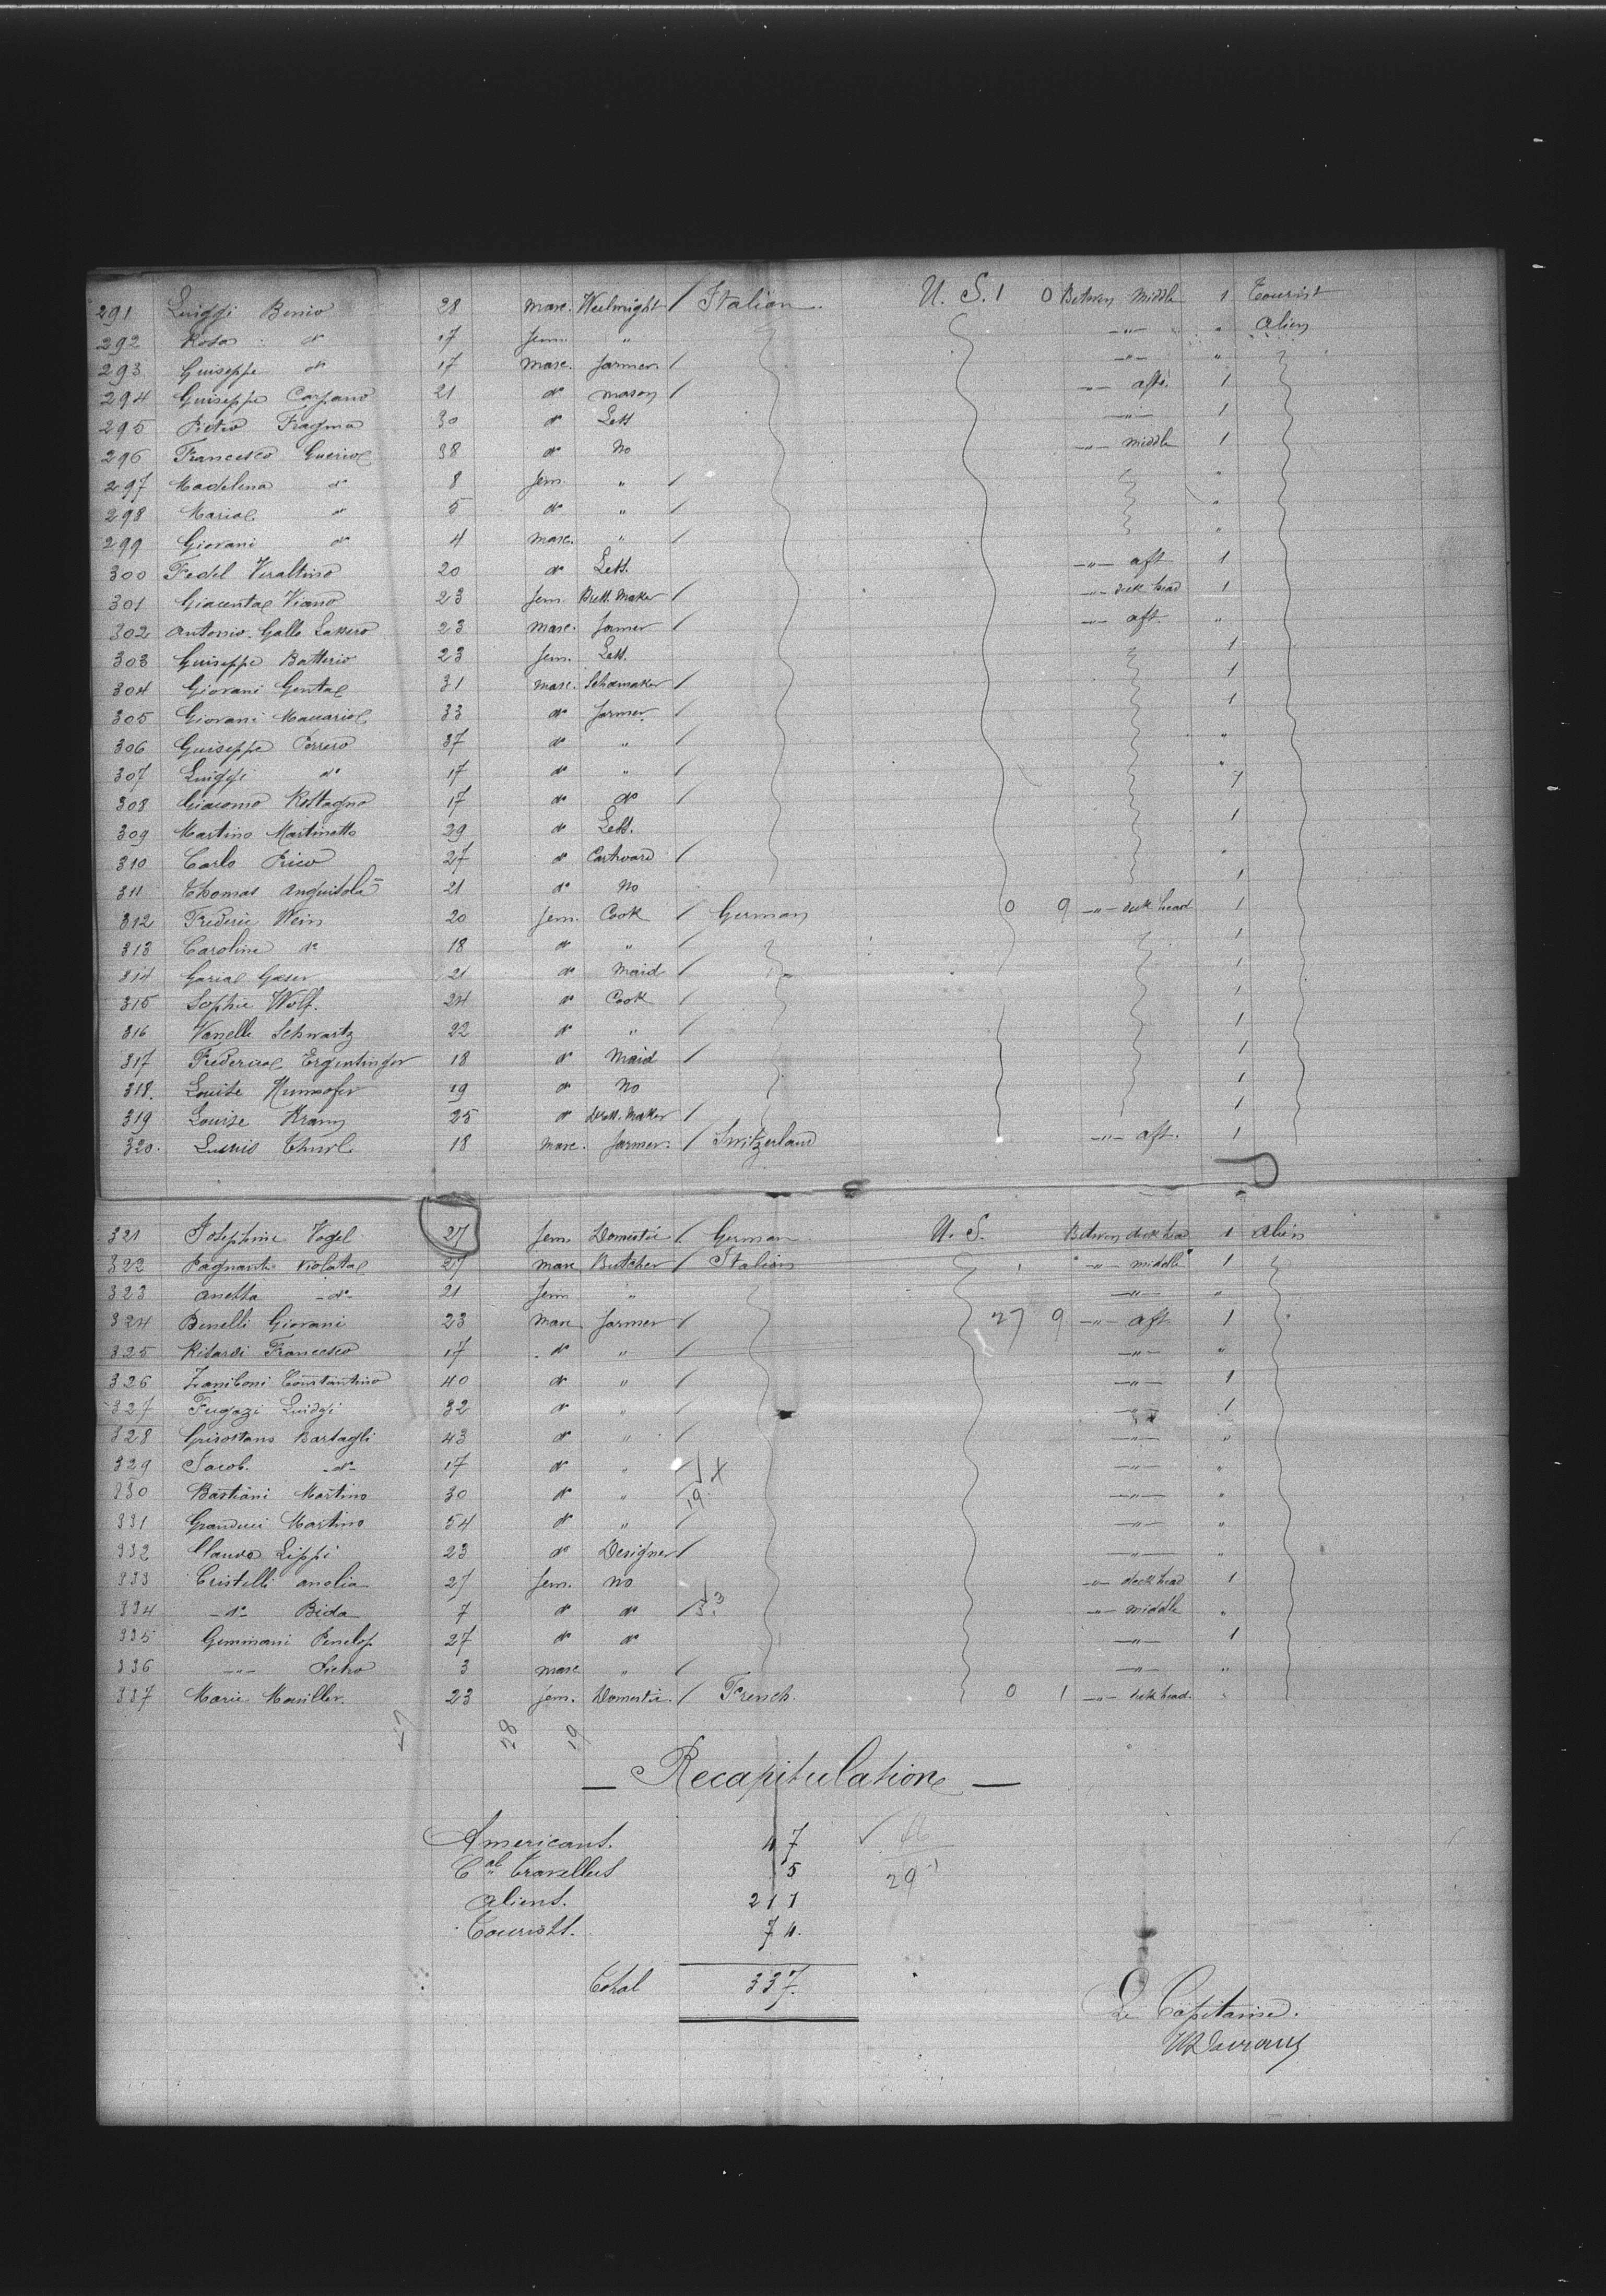 291 Luiggi Benio 28 masc. Weelwright / Italian U. S. 1 0 Betwen Middle 1 Tourist
292 Rosa do 17 fem. " —"— " Alien
293 Guiseppe do 17 masc. farmer / —"— "
294 Guiseppe Carpano 21 do mason / —"— aft. 1
295 Pietro Fragma 30 do Less —"— 1
296 Francesco 38 do No —"— middle 1
297 Madelena do 8 fem. " / "
298 Maria do 5 do " / "
299 Giovani do 4 masc. " / "
300 Fedel Veraltino 20 do Less. —"— aft 1
301 Giacenta Viano 23 fem. Dress. Maker / —"— deck head 1
302 Antonio Gallo Lassero 23 masc. farmer / —"— aft. "
303 Guiseppe Batterio 23 fem. Less. 1
304 Giovani Genta 31 masc. Schoemaker / 1
305 Giovani Macario 33 do farmer. / 1
306 Guiseppe Perrero 37 do " / "
307 Luiggi do 17 do " / "
308 Giacomo Rostagno 17 do do /
309 Martino Martinetto 29 do Less. 1
310 Carlo Prico 27 do / "
311 Thomas Anguisola 21 do No 1
312 Frederic Wein 20 fem. Cook / German 0 9 —"— deck head 1
313 Caroline do 18 do " / 1
314 21 do Maid / 1
315 Sophie Wolf. 24 do Cook / 1
316 Schwartz 22 do " / 1
317 Frederica 18 do Maid / 1
318. Louise 19 do No 1
319 Louise Krany 25 do dress. Maker / 1
320. 18 masc. farmer. / Switzerland —"— aft. 1
321 Josephine Vogel 27 fem. Domestic / German U. S. Betwen deck head 1 Alien
322 Pagnanti Violata 27 masc Butcher / Italian —"— middle 1
323 Anetta —do— 21 fem " —"— "
324 Benelli Giovani 23 masc farmer / 27 9 —"— aft 1
325 Risardi Francesco 17 do " / —"— "
326 Zaniboni Constantino 40 do " / —"— 1
327 Fugazi Luidgi 32 do " / 1
328 Grisostano Bartagli 43 do " / —"— "
329 Jacob. —do— 17 do " / X —"— "
330 Bastiani Martino 30 do " / 19 —"— "
331 Granduci Martino 54 do " / —"— "
332 Lippi 23 do Designer / —"— "
333 Cristelli Anolia 27 fem. no —"— deck head 1
334 —do— Bida 7 do do / 3 —"— middle "
335 Geminani Penelop 27 do do —"— 1
336 —"— Pietro 3 masc " / —"— "
337 Marie Mouiller 23 fem. Domestic. / French. 0 1 —"— deck head. "
28 19
— Recapitulation —
Americans. 47
Cal Travellers 5
Aliens. 211
Tourists. 74.
29
Total 337.
Le Capitaine.